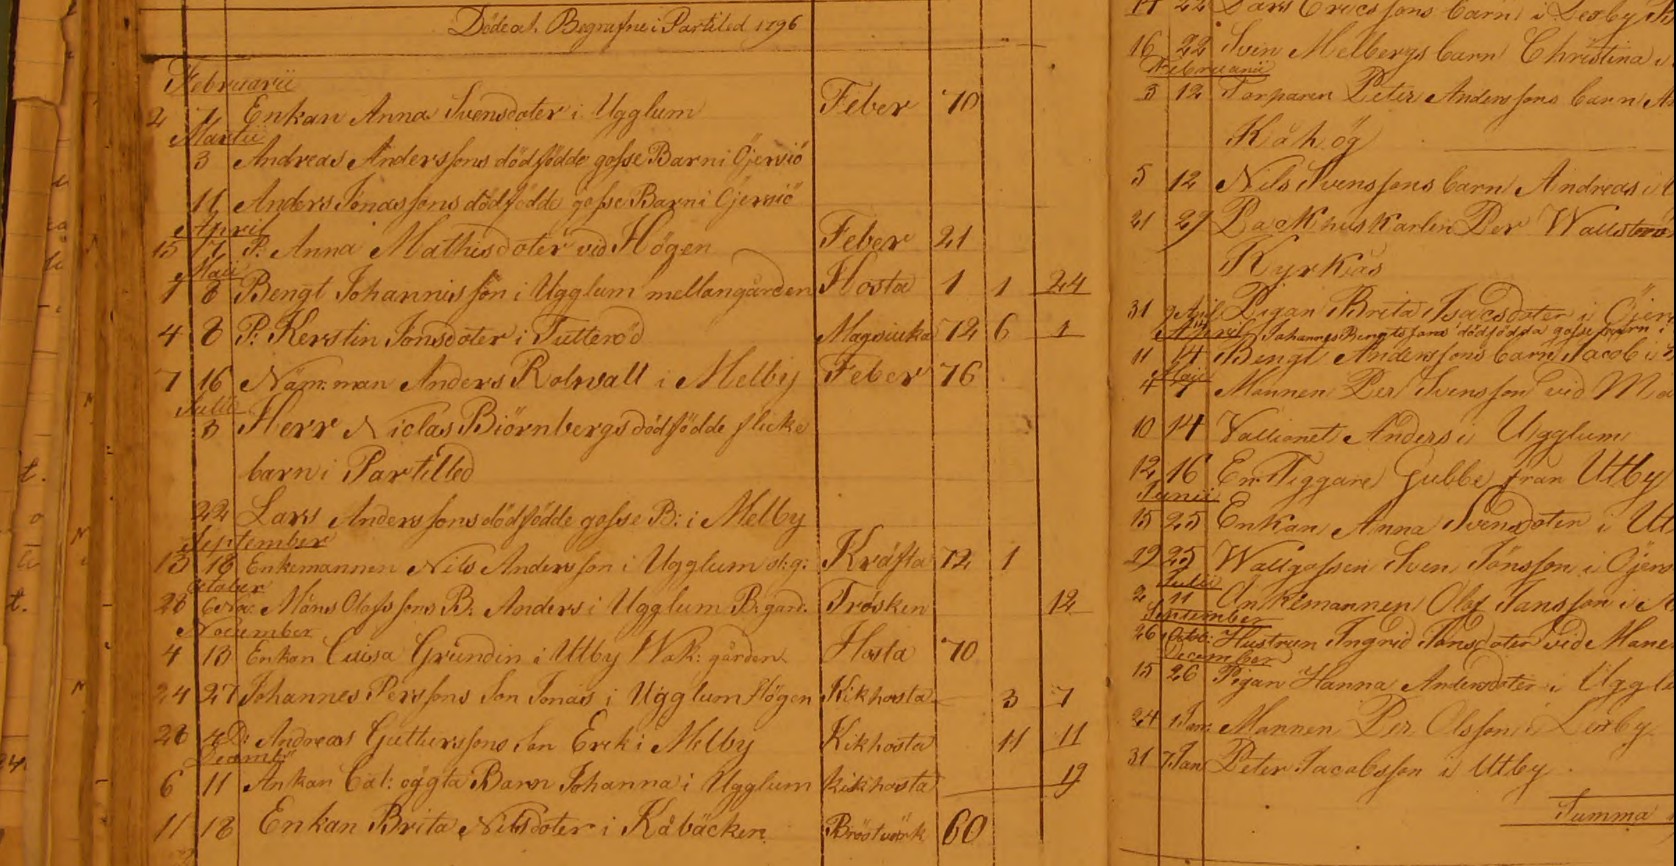 Döde och Begrafne i Partiled 1796
Februarii
2 7 Enkan Anna Svensdoter i Ugglum Feber 70
Martii
3 Andreas Anderssons dödfödde gosse Barn i Öjersiö
11 Anders Jonassons dödfödde gosse Barn i Öjersiö
April
15 17 P: Anna Mathisdoter vid Högen Feber 21
Maii
1 8 Bengt Johannisson i Ugglum mellangården Hosta 1 1 24
4 8 P: Kerstin Jonsdoter i Tutteröd Magsiuka 72 6 1
7 16 Näm: man Anders Rolwall i Melby Feber 76
Julii
3 Herr Niclas Biörnbergs dödfödde flicke
barn i Partilled
22 Lars Anderssons dödfödde gosse B: i Melby
September
13 18 Enkemannen Nils Andersson i Ugglum st: g: Kräfta 72 1
October
26 6 Nov: Måns Olofssons B: Anders i Ugglum B: gård. Trösken 12
November
4 13 Enkan Cuisa Grundin i Utby Wak: gården Hosta 70
24 27 Johannes Perssons Son Jonas i Ugglum Högen Kikhosta 3 7
28 4 D: Andreas Gutturssons son Erek i Melby Kikhosta 11 11
Decemb:
6 11 Ankan Cat: oägta Barn Johanna i Ugglum kikhosta 19
11 18 Enkan Brita Nilsdoter i Kåbäcken Bröstvärk 60
17 22 Lars Ericssons barn i Lexby
16 22 Svin Melbergs barn Christina i
Februarii
5 12 Torparen Peter Anderssons barn
Kåhög
5 12 Nils Svenssons barn Andreas i
21 27 Packhuskarlen Per Wallstrom
Kyrkås
31 9 April Pigan Brita Isacsdoter i Öjer
April Johannes Bengtssons dödfödda gosse barn i
11 14 Bengt Anderssons barn Jacob i
Maji
4 7 Mannen Per Svensson vid
10 14 Vallionet Anders i Ugglum
12 16 En Tiggare Gubbe från Utby
Junii
15 25 Enkan Anna Svensdoter i
19 25 Wallgossen Sven Jönsson i Öjers
Julii
2 11 Enkemannen Olof Jansson i
September
26 Octob: Hustrun Ingrid Jonsdoter vid Mane
December
15 26 Pigan Hanna Andersdoter i Uggl
24 1 Jan: Mannen Per Olsson i Lexby
31 7 Jan Peter Jacobsson i Utby
Summa